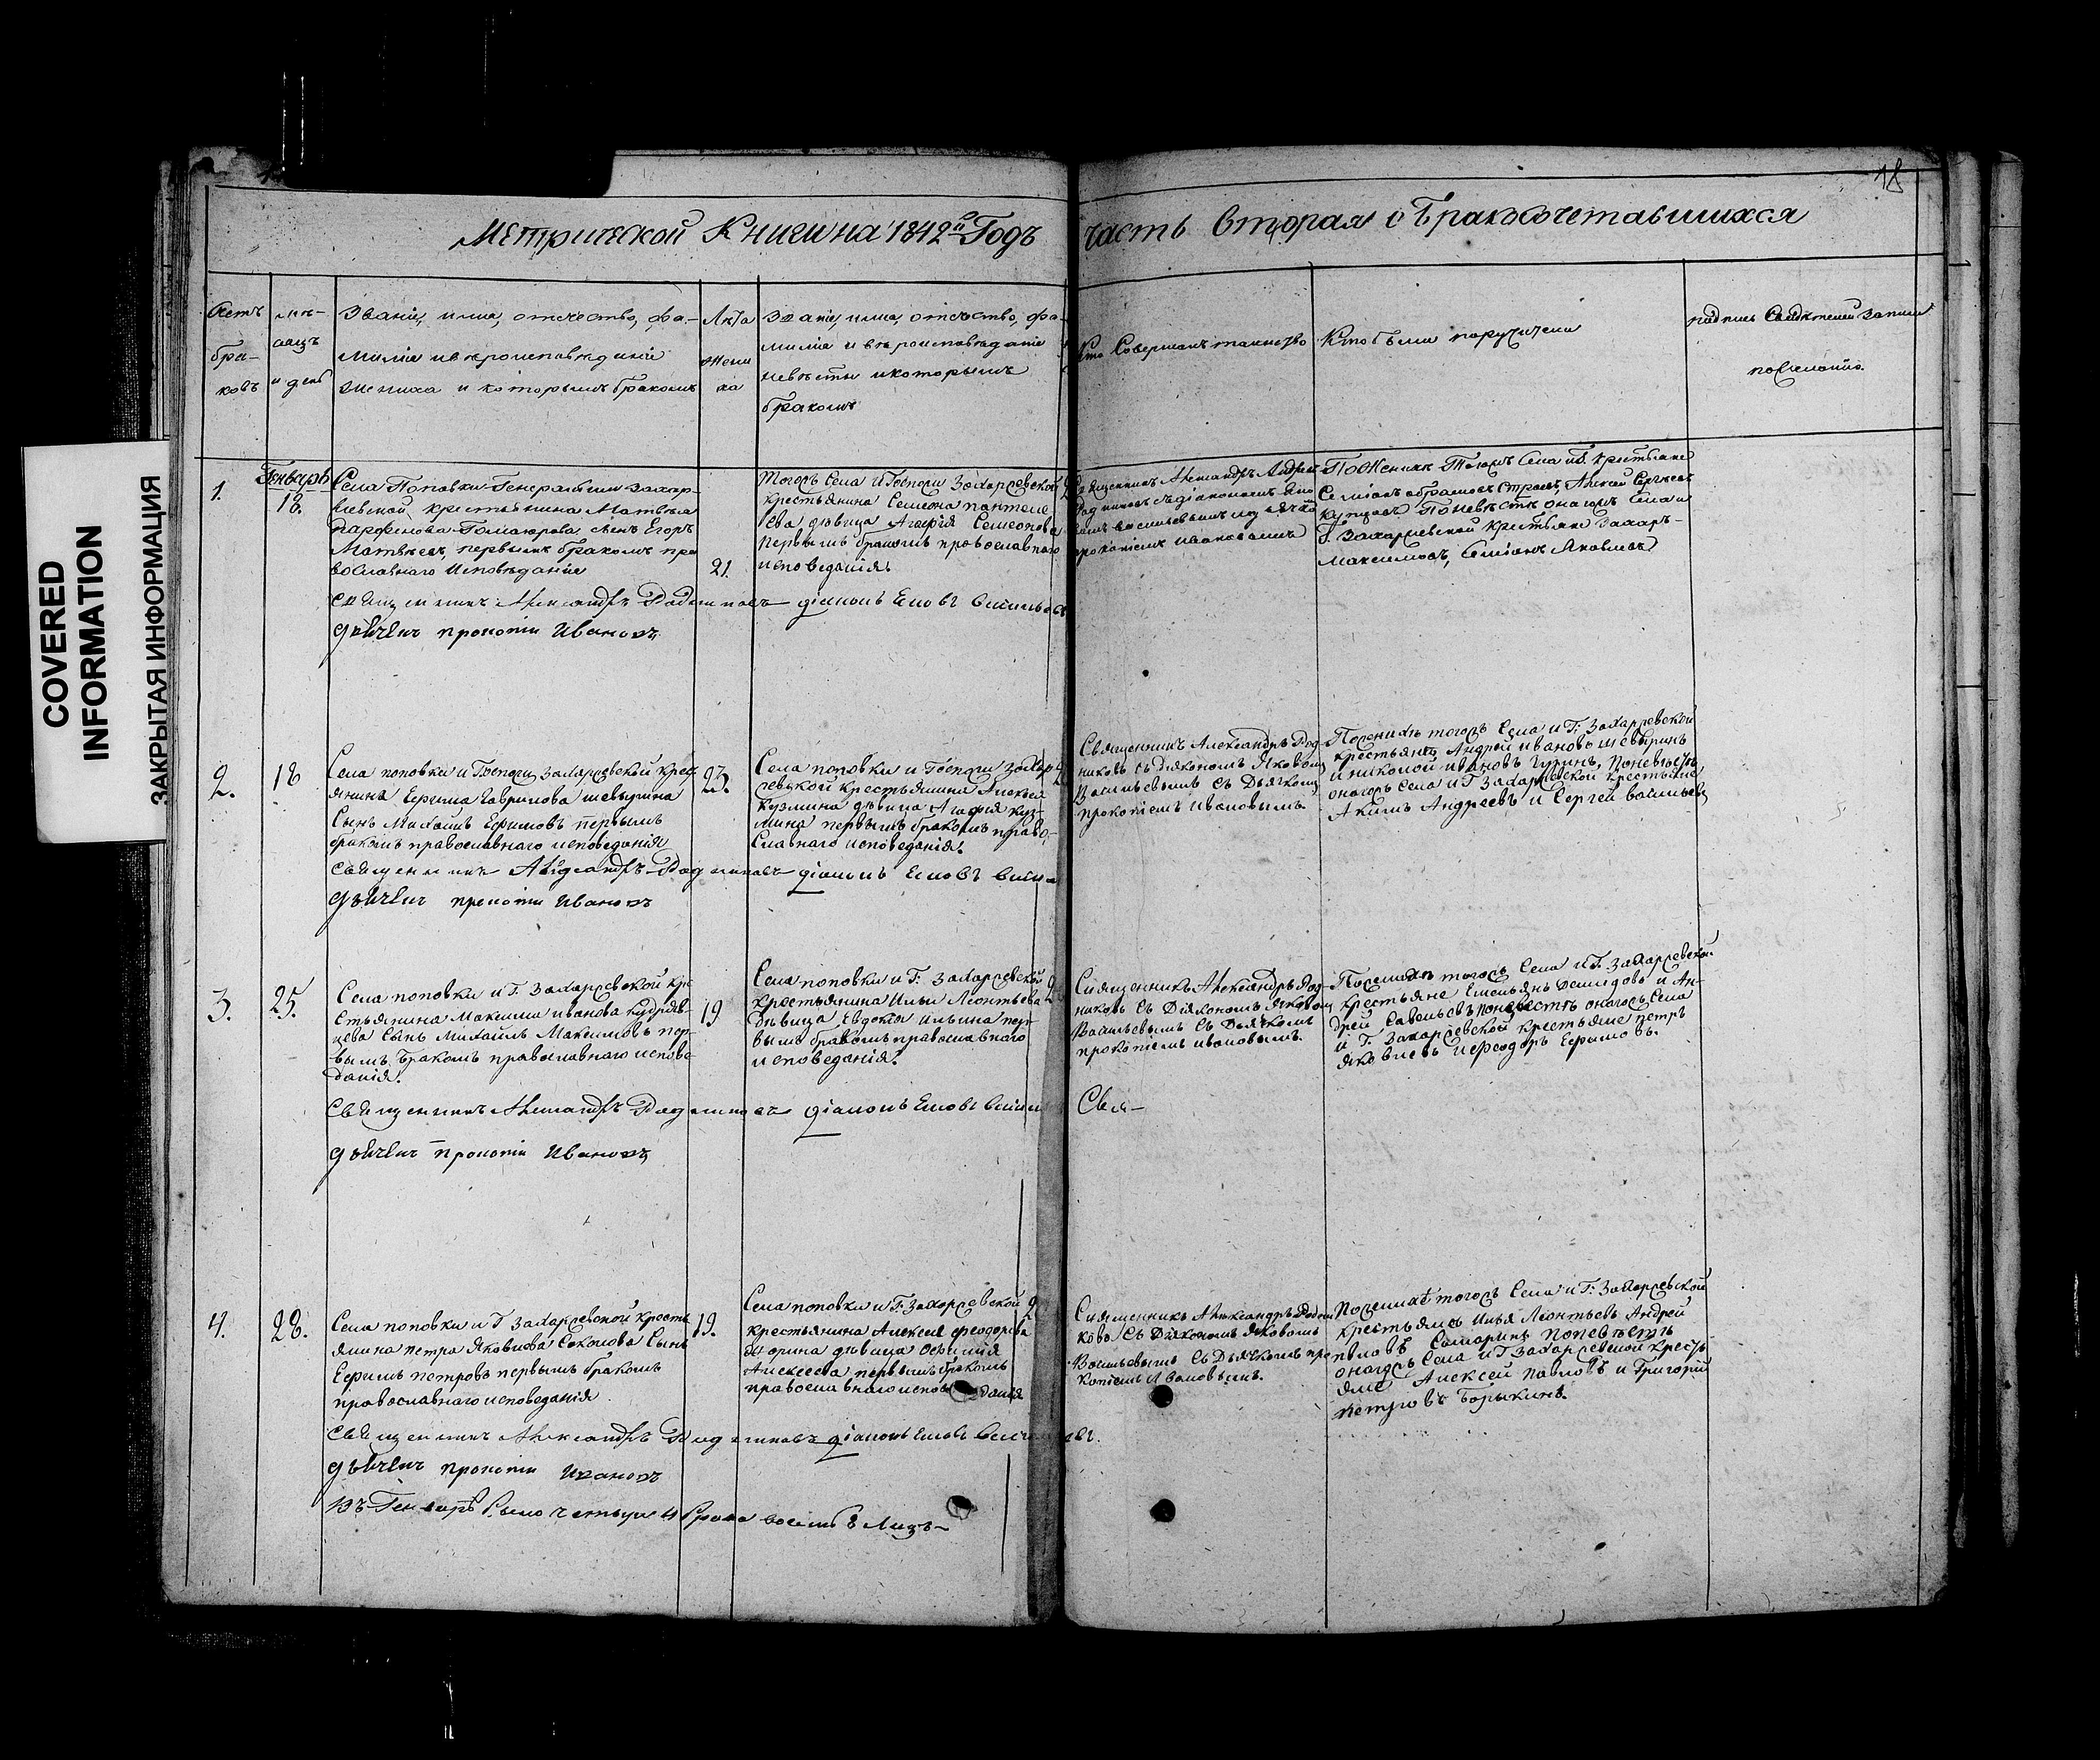 18
Метрической Книги на 1842й Годъ
часть вторая о Бракосочетавшихся
Счетъ браковъ
мѣсяцъ и день
Званіе, имя, отечество, фа-
милія и вѣроисповѣданіе
жениха и которымъ бракомъ
Лѣта
жени
ха
Званіе, имя, отечество, фа-
милія и вѣроисповѣданіе
невѣсты и которымъ
бракомъ
Кто Совершалъ таинство
Кто были поручители
подпись Свидѣтелей Записи
по желанію.
1.
Генварь
18.
Села Поповки Генеральши Захар-
жевской крестьянина Матвѣя
Парфенова сынъ Егоръ
Матвѣевъ, первымъ бракомъ пра
вославнаго Исповѣданія
21.
Тогожъ Села и Госпожи Захаржевской
крестьянина Семиона пантеле
ева дѣвица Агафія Семионова
первымъ бракомъ православнаго
исповеданія.
Священникъ Александръ Андрее
Родниковъ съ діакономъ Яко
вомъ васильевымъ и дьячко
прокопіемъ ивановымъ
По Женихѣ Тогожъ Села и Г. крестьяне
Семіонъ абрамовъ Алексей Сергѣевъ
По невѣстѣ онагожъ Села и
Г. Захаржевской крестьяне Захаръ
максимовъ, Семіонъ Яковлевъ
Священникъ Александръ Родниковъ діаконъ Яковъ Васильевъ
дьячекъ прокопій Ивановъ
2.
18
Села поповки и Госпожи Захаржевской крест
янина Ефима Гаврилова шевырина
Сынъ Михаилъ Ефимовъ первымъ
бракомъ православнаго исповеданія
23.
Села поповки и Госпожи Захар
жевской крестьянина Алексея
Кузмина дѣвица Агафія Куз-
мина первымъ бракомъ право-
славнаго исповеданія.
Священникъ Александръ Род-
никовъ съ діякономъ Яковомъ
Васильевымъ съ Дьячкомъ
прокопіемъ Ивановымъ.
По женихѣ тогожъ Села и Г: Захаржевской
крестьяне Андрей ивановъ шевыринъ
и николой ивановъ Гуринъ, По невѣстѣ
онагожъ Села и Г Захаржевской крестьяне
Акимъ Андреевъ и Сергей васильевъ
Священникъ Александръ Родниковъ діаконъ Яковъ васи
дьячекъ прокопій Ивановъ
3.
25.
Села поповки и Г. Захаржевской кре
стьянина Максима иванова Кудряв-
цева Сынъ Михаилъ Максимовъ пер-
вымъ бракомъ православнаго испове
данія.
19
Села поповки и Г. Захаржевской
крестьянина Ильи Леонтьева
дѣвица Евдокія ильина пер-
вымъ бракомъ православнаго
исповеданія.
Священникъ Александръ Род-
никовъ съ Діякономъ Яковомъ
Васильевымъ съ Дьячкомъ
прокопіемъ ивановымъ.
По женихѣ тогожъ Села и Г. Захаржевской
крестьяне Емельянъ Демидовъ и Ан-
дрей Савельевъ по невестѣ онагожъ Села
и Г. Захаржевской крестьяне петръ
яковлевъ и феодоръ Ефимовъ.
Священникъ Александръ Родниковъ діаконъ Яковъ Васил
Свя-
дьячекъ прокопій Ивановъ
4.
28.
Села поповки и Г Захаржевской кресть
янина петра Яковлева Соколова Сынъ
Ефимъ петровъ первымъ бракомъ
православнаго исповеданія.
19.
Села поповки и Г. Захаржевской
крестьянина Алексея феодорова
дѣвица
Алексеева первымъ бракомъ
православнаго исповеданія
Священникъ Александръ Родни
ковъ съ Діякономъ Яковомъ
Васильевымъ съ Дьячкомъ про
копіемъ Ивановымъ.
По женихѣ тогожъ Села и Г: Захаржевской
крестьяне Илья Леонтьевъ Андрей
павловъ Самаринъ по невѣстѣ
онагожъ Села и Г Захаржевской кресть
яне Алексей павловъ и Григорій
петровъ Борыкинъ.
Священникъ Александръ Родниковъ діаконъ Яковъ Васильевъ
дьячекъ прокопій Ивановъ
Въ Генваре было четыри 4 брака восемь 8 лицъ
COVERED
INFORMATION
ЗАКРЫТАЯ ИНФОРМАЦИЯ